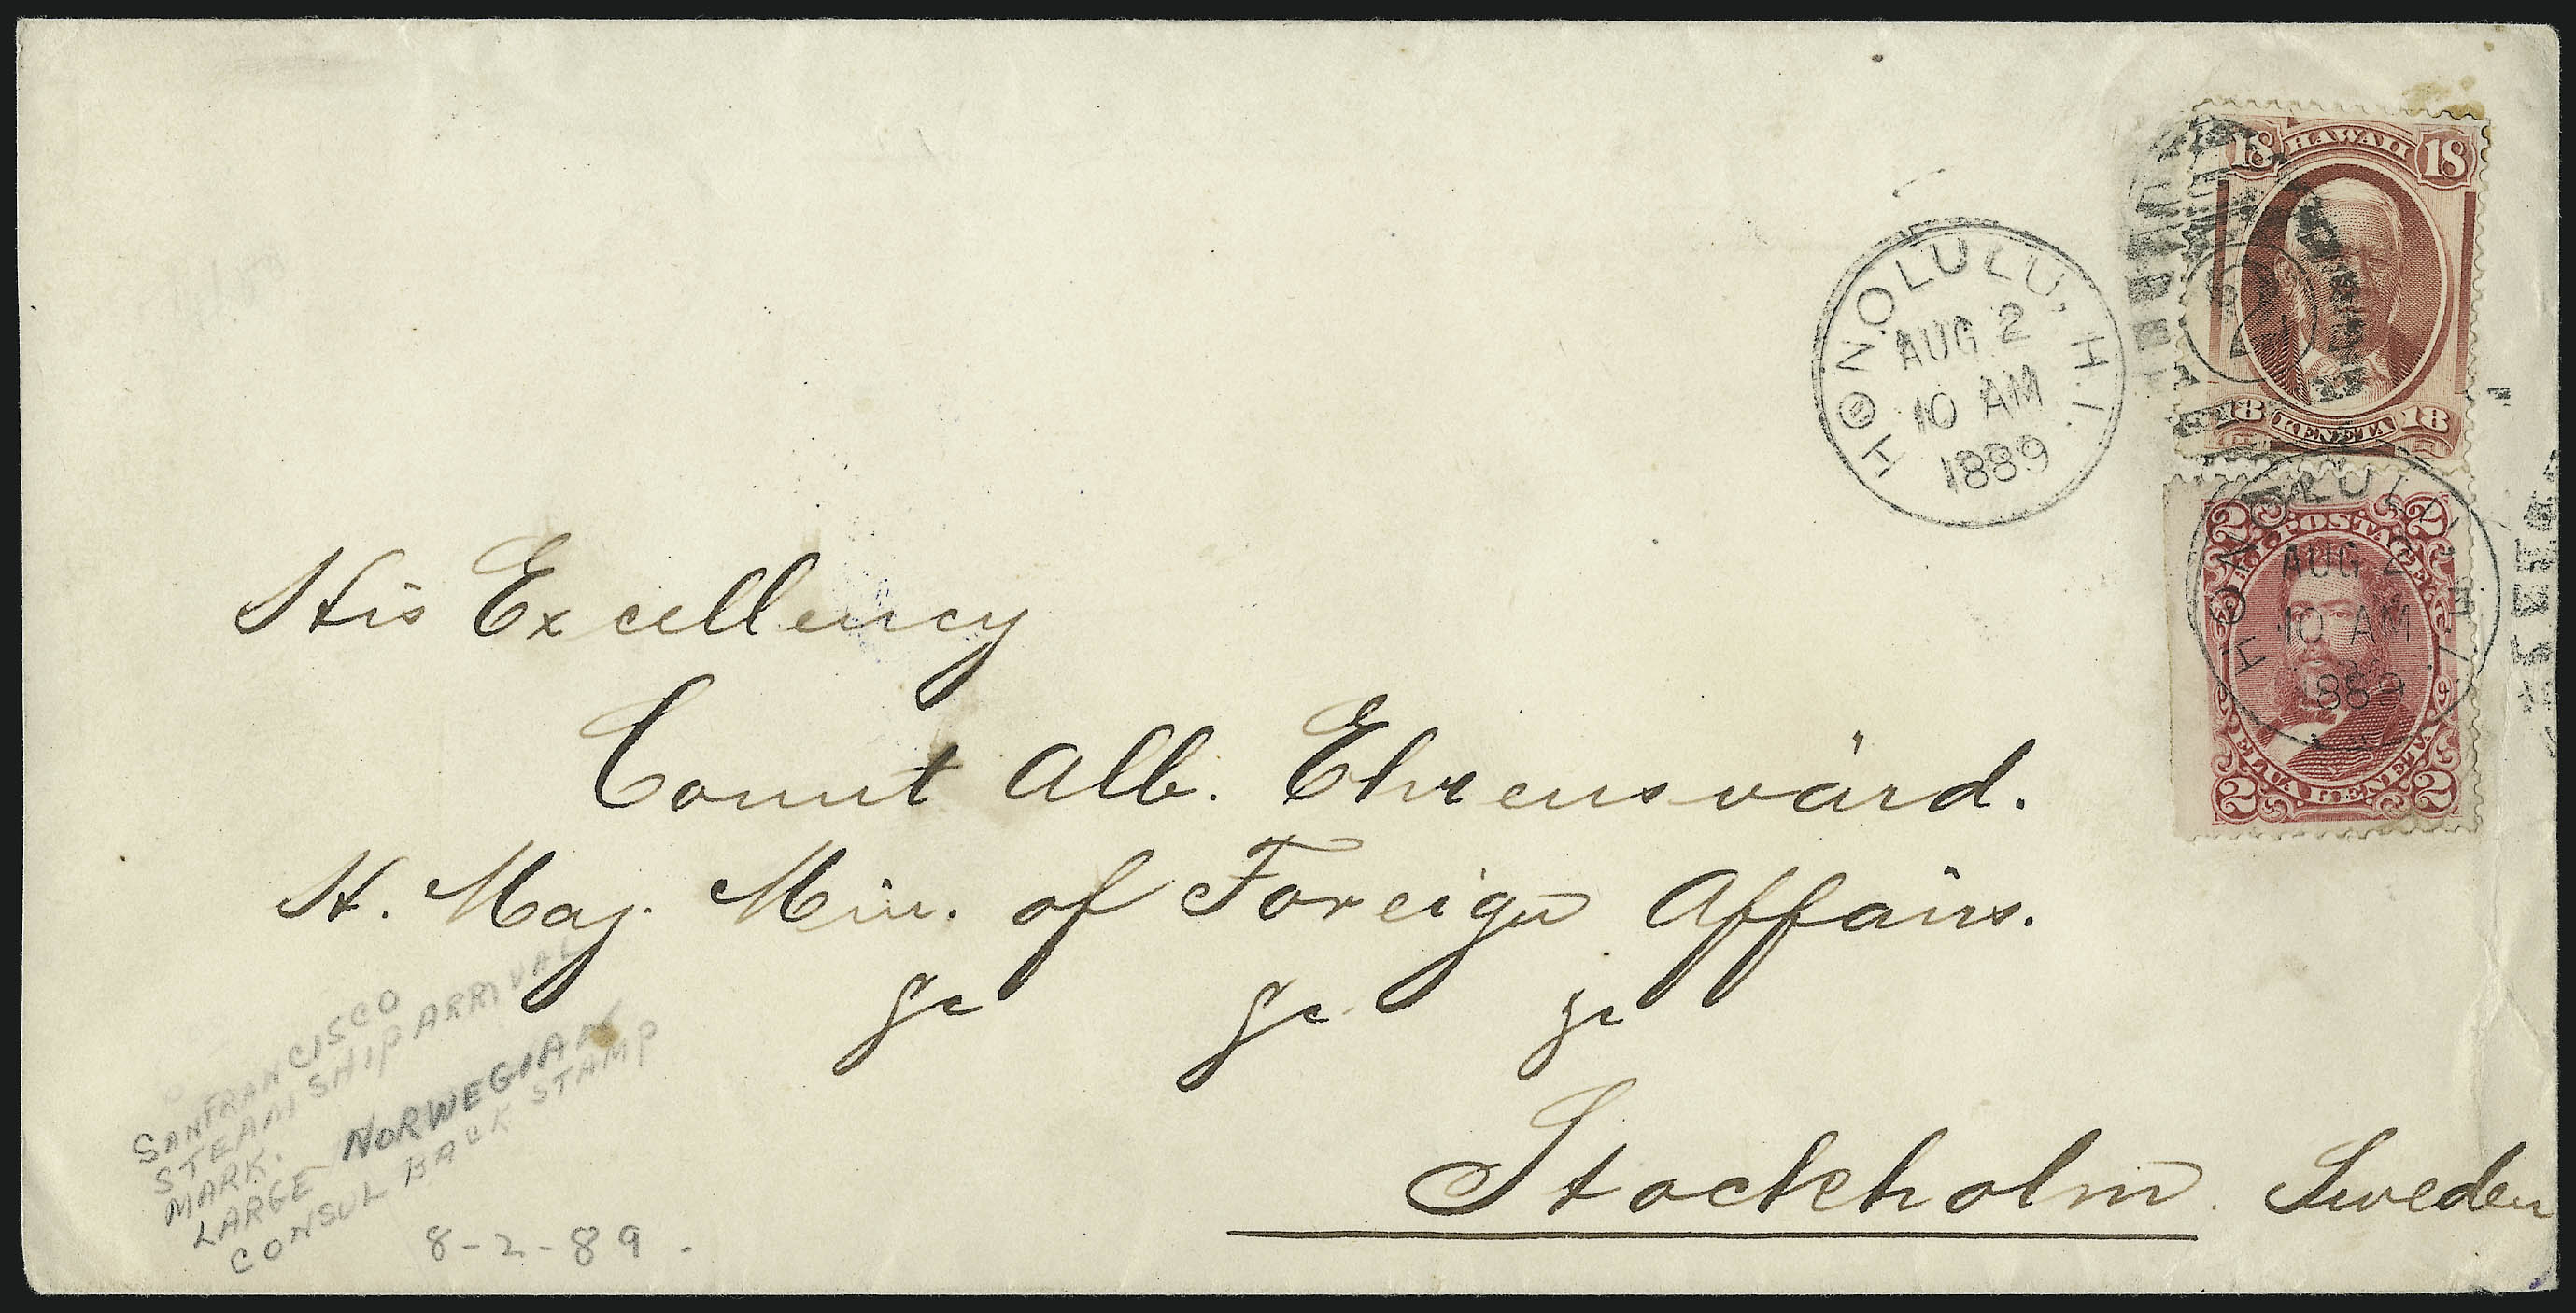 18 HAWAII 18
18 KENETA 18
HONOLULU, H.I.
AUG 2
10 AM
1889
2 H.I. POSTAGE 2
HONOLULU H.I.
AUG 2
10 AM
1889
2 ELUA KENETA 2
His Excellency
Count Alb. Ehrensvärd.
H. Maj. Min. of Foreign Affairs.
&c &c &c
Stockholm. Sweden
SAN FRANCISCO
STEAMSHIP ARRIVAL
MARK.
LARGE NORWEGIAN
CONSUL BACK STAMP
8-2-89.